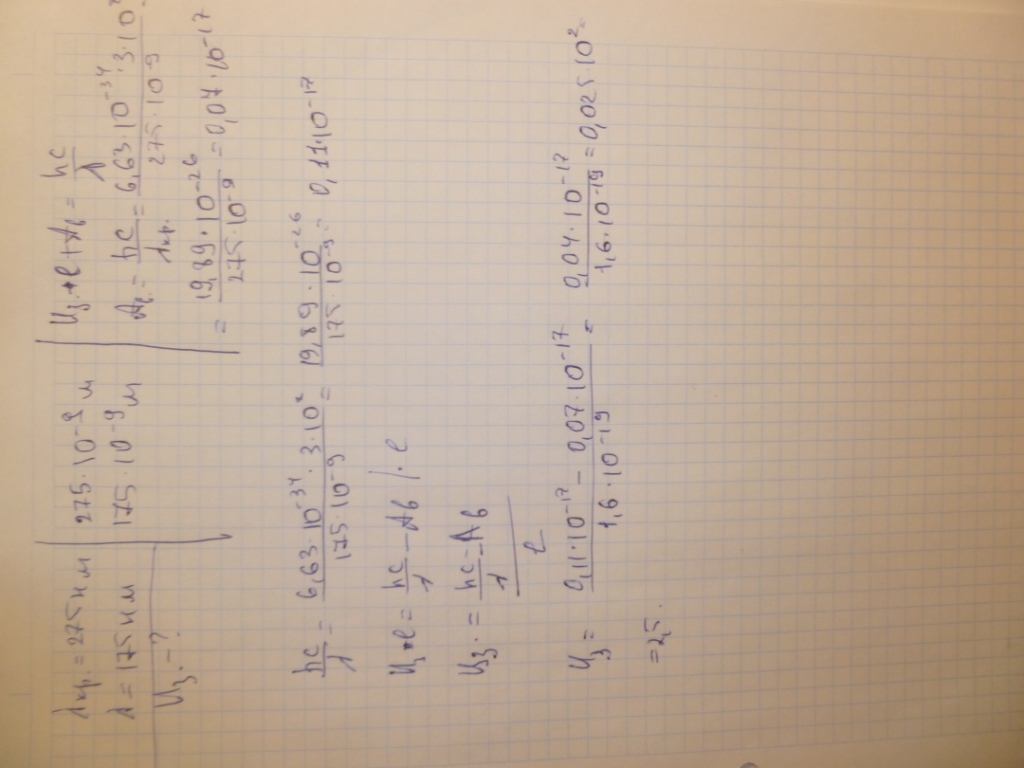 λкр. = 275 нм | 275·10⁻⁹ м | Uз.·e+Aв = hc/λ
λ = 175 нм | 175·10⁻⁹ м | Aв = hc/λкр. = 6,63·10⁻³⁴·3·10⁸/275·10⁻⁹
Uз. - ?
= 19,89·10⁻²⁶/275·10⁻⁹ = 0,07·10⁻¹⁷
hc/λ = 6,63·10⁻³⁴·3·10⁸/175·10⁻⁹ = 19,89·10⁻²⁶/175·10⁻⁹ = 0,11·10⁻¹⁷
Uз·e = hc/λ - Aв /·e
Uз. = hc/λ - Aв/e
Uз = 0,11·10⁻¹⁷ - 0,07·10⁻¹⁷/1,6·10⁻¹⁹ = 0,04·10⁻¹⁷/1,6·10⁻¹⁹ = 0,025·10² =
= 2,5.